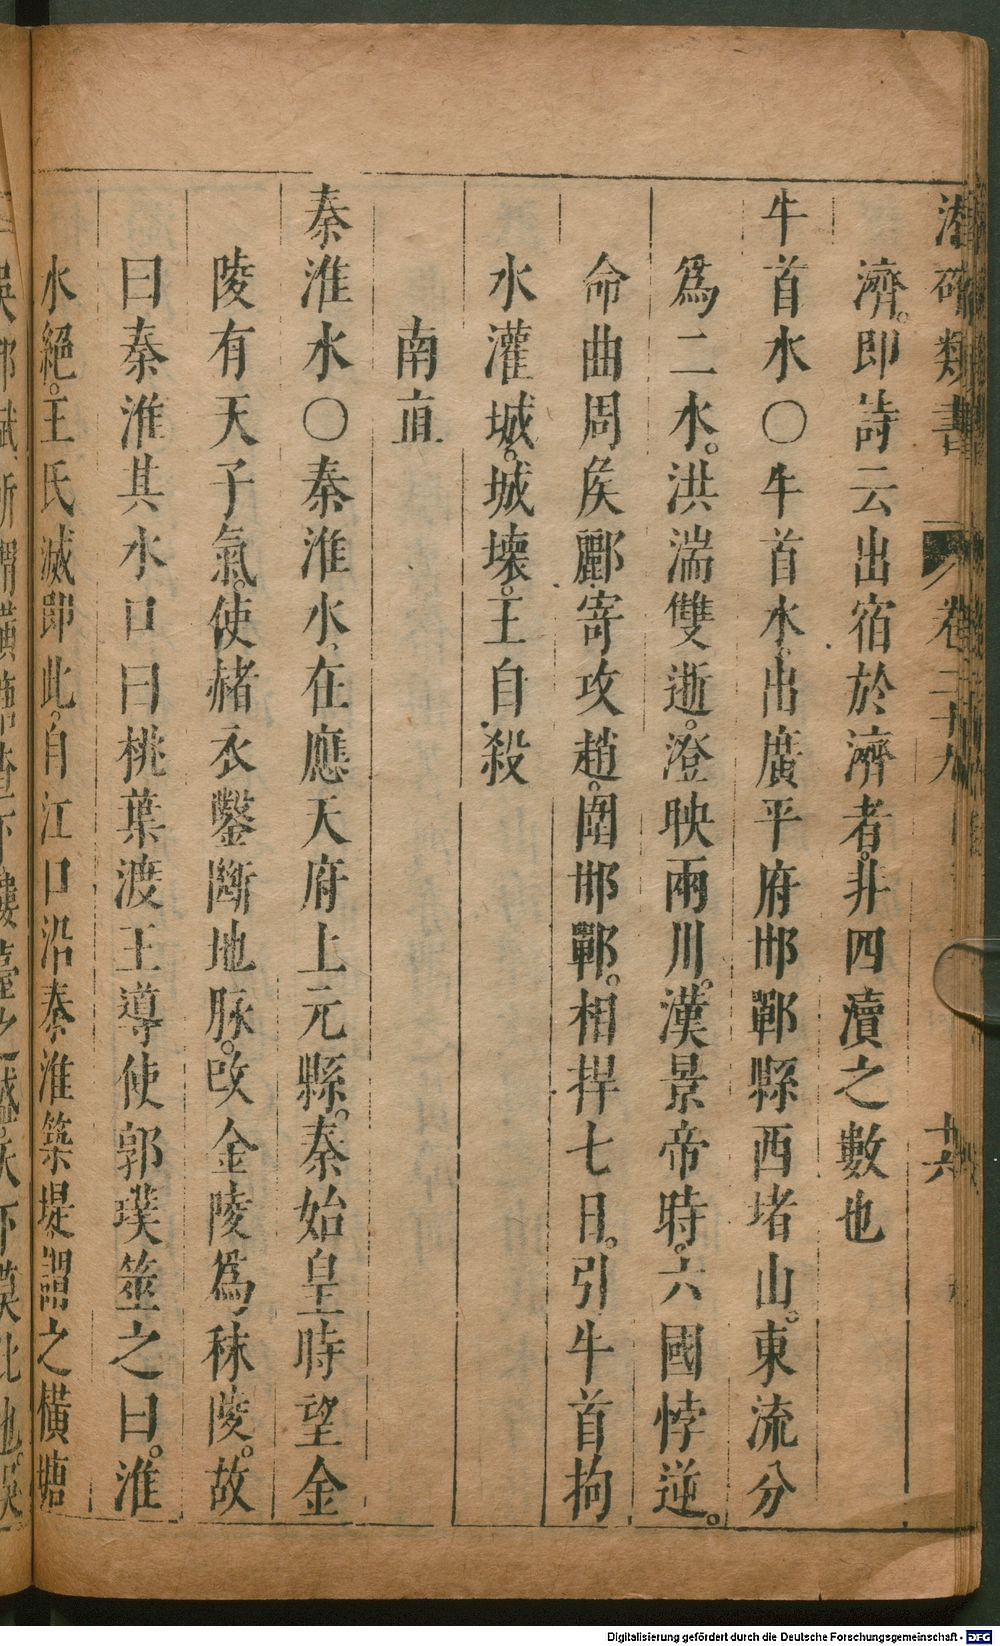 潛確類書 卷二十九 十六
濟。即詩云出宿於濟者。非四瀆之數也
牛首水〇牛首水。出廣平府邯鄲縣西堵山。東流分
爲二水。洪湍雙逝。澄映兩川。漢景帝時。六國悖逆。
命曲周矦酈寄攻趙。圍邯鄲。相捍七日。引牛首拘
水灌城。城壞。王自殺
南直
秦淮水〇秦淮水。在應天府上元縣。秦始皇時望金
陵有天子氣。使赭衣鑿斷地脉。改金陵爲秣陵。故
曰秦淮其水口曰桃葉渡王導使郭璞筮之曰。淮
水絕。王氏滅即此。自江口沿秦淮築堤謂之橫塘
Digitalisierung gefördert durch die Deutsche Forschungsgemeinschaft - DFG